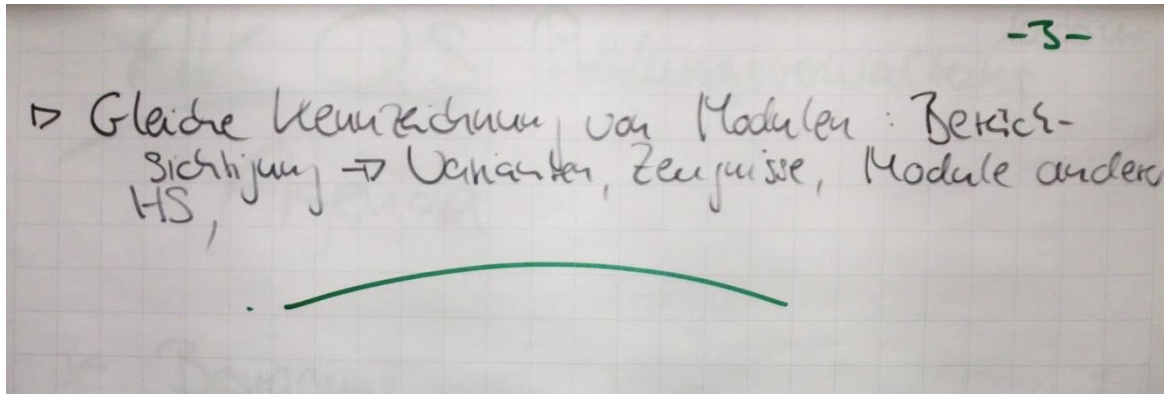 -3-
▷ Gleiche Kennzeichnung von Modulen: Berück-
sichtigung → Varianten, Zeugnisse, Module anderer
HS,